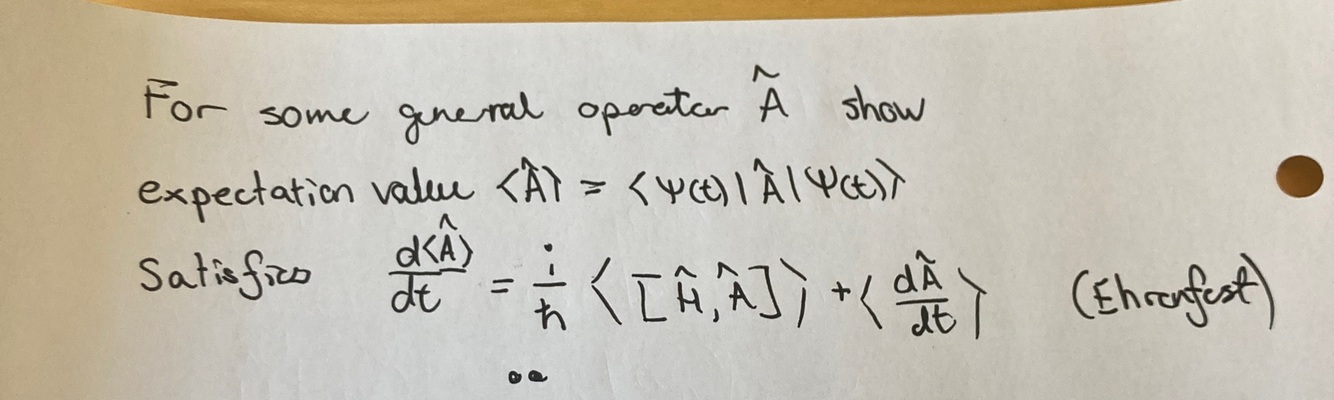 For some general operator Â show
expectation value ⟨Â⟩ = ⟨Ψ(t)|Â|Ψ(t)⟩
Satisfies d⟨Â⟩/dt = i/ħ ⟨[Ĥ,Â]⟩ + ⟨dÂ/dt⟩ (Ehrenfest)